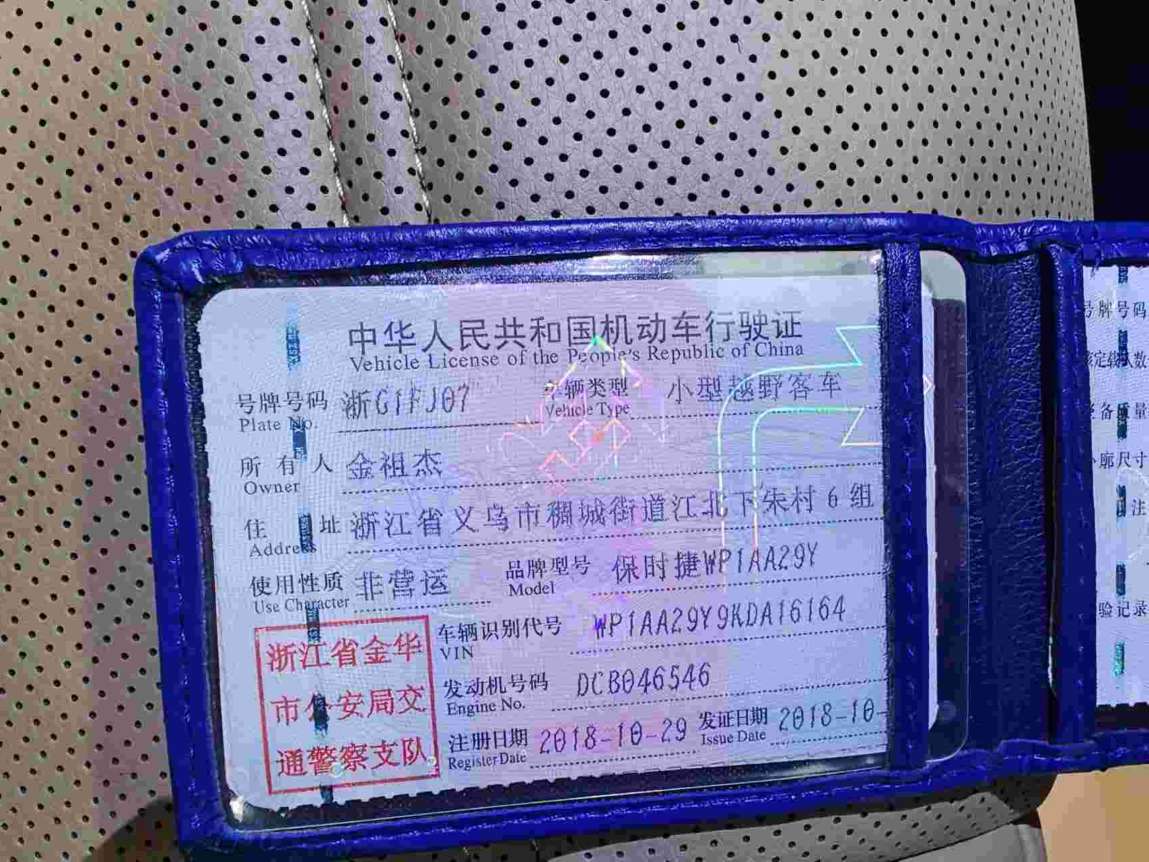 中华人民共和国机动车行驶证
Vehicle License of the People's Republic of China
号牌号码 浙G1FJ07 车辆类型 小型越野客车
Plate No. Vehicle Type
所有人 金祖杰
Owner
住址 浙江省义乌市稠城街道江北下朱村6组
Address
使用性质 非营运 品牌型号 保时捷WP1AA29Y
Use Character Model
浙江省金华
市公安局交
通警察支队
车辆识别代号 WP1AA29Y9KDA16164
VIN
发动机号码 DCB046546
Engine No.
注册日期 2018-10-29 发证日期 2018-10-
Register Date Issue Date
号牌号码
定载人数
备质量
廓尺寸
注
验记录